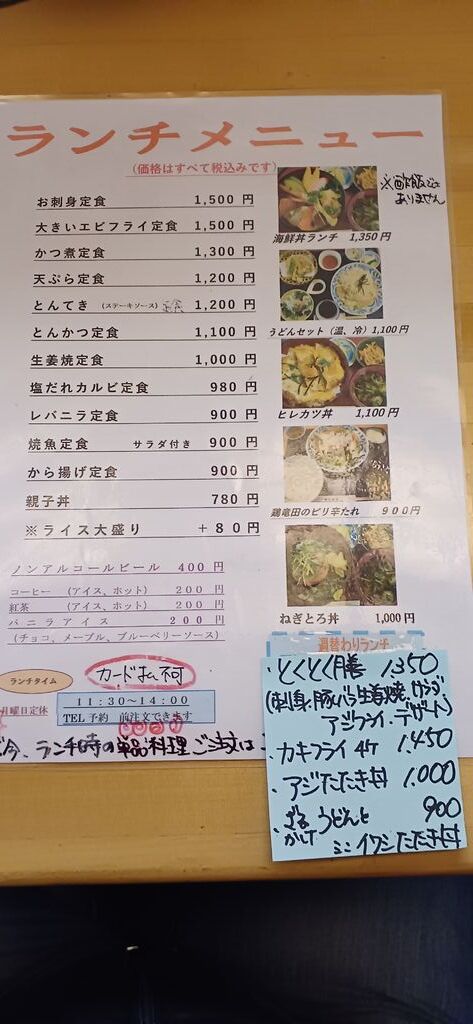 ランチメニュー
(価格はすべて税込みです)
お刺身定食 1,500 円
大きいエビフライ定食 1,500 円
かつ煮定食 1,300 円
天ぷら定食 1,200 円
とんてき (ステーキソース) 定食 1,200 円
とんかつ定食 1,100 円
生姜焼定食 1,000 円
塩だれカルビ定食 980 円
レバニラ定食 900 円
焼魚定食 サラダ付き 900 円
から揚げ定食 900 円
親子丼 780 円
※ライス大盛り +80円
ノンアルコールビール 400 円
コーヒー (アイス、ホット) 200 円
紅茶 (アイス、ホット) 200 円
バニラアイス 200 円
(チョコ、メープル、ブルーベリーソース)
ランチタイム
カード払不可
11:30~14:00
月曜日定休
TEL予約 前注文できます
今、ランチ時の単品料理ご注文は
※酢飯では
ありません
海鮮丼ランチ 1,350 円
うどんセット (温、冷) 1,100 円
ヒレカツ丼 1,100 円
鶏竜田のピリ辛たれ 900円
ねぎとろ丼 1,000 円
週替わりランチ
・とくとく膳 1350
(刺身、豚バラ生姜焼、サラダ
アジフライ・デザート)
・カキフライ4ケ 1.450
・アジたたき丼 1.000
・ざる うどんと 900
かけ
ミニイワシたたき丼